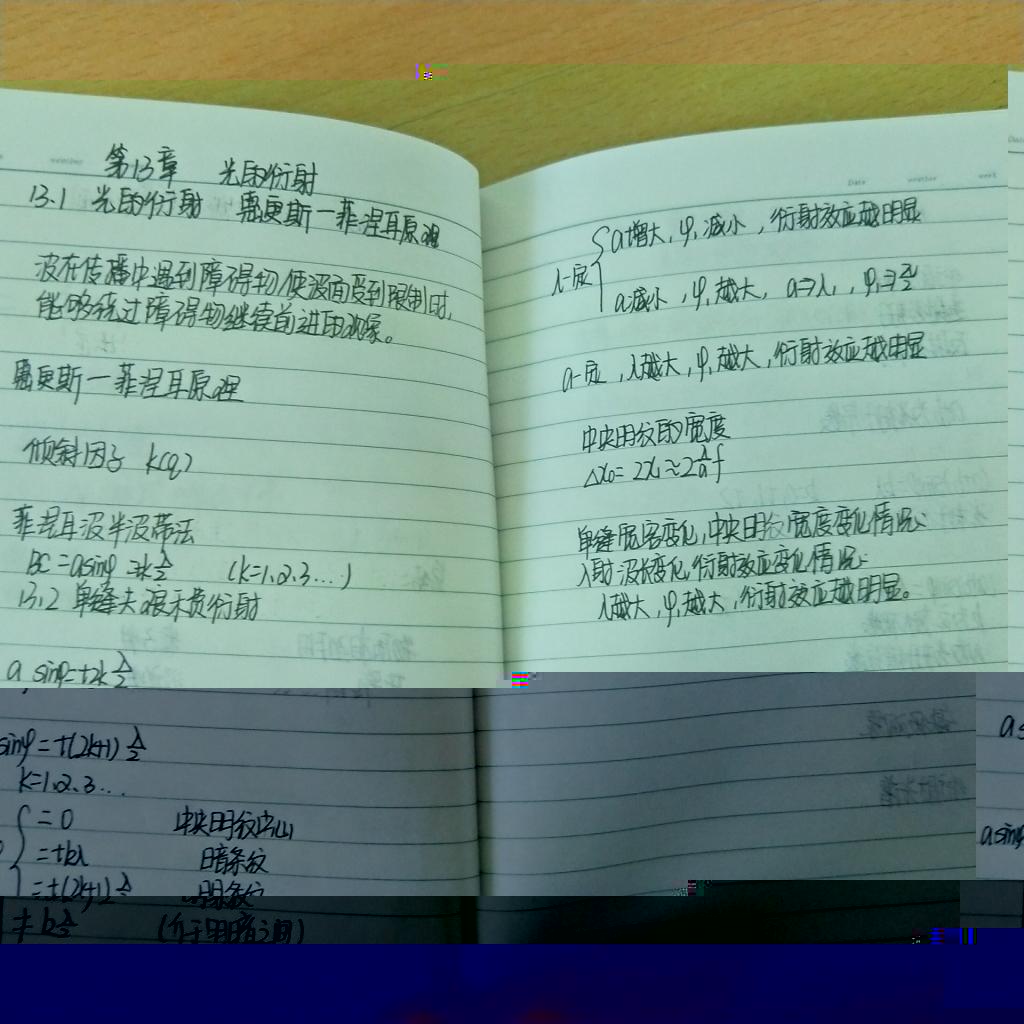 第13章 光的衍射
13.1 光的衍射 惠更斯一菲涅耳原理
波在传播中遇到障碍物,使波面受到限制时,
能够绕过障碍物继续前进的现象。
惠更斯一菲涅耳原理
倾斜因子 k(φ)
菲涅耳波半波带法
BC=asinφ=k λ/2 (k=1、2、3…)
13.2 单缝夫琅禾费衍射
a sinφ=±2k λ/2
sinφ=±(2k+1) λ/2
k=1、2、3…
=0 中央明纹中心
=±kλ 暗条纹
=±(2k+1) λ/2 明条纹
≠k λ/2 (介于明暗之间)
Date weather week
λ一定 { a增大,φ₁减小,衍射效应越明显
a减小,φ₁越大, a⇒λ, φ₁⇒π/2
a一定,λ越大,φ₁越大,衍射效应越明显
中央明纹的宽度
Δx₀=2x₁≈2 λ/a f
单缝宽窄变化,中央明纹宽度变化情况:
入射波长变化,衍射效应变化情况:
λ越大,φ₁越大,衍射效应越明显。